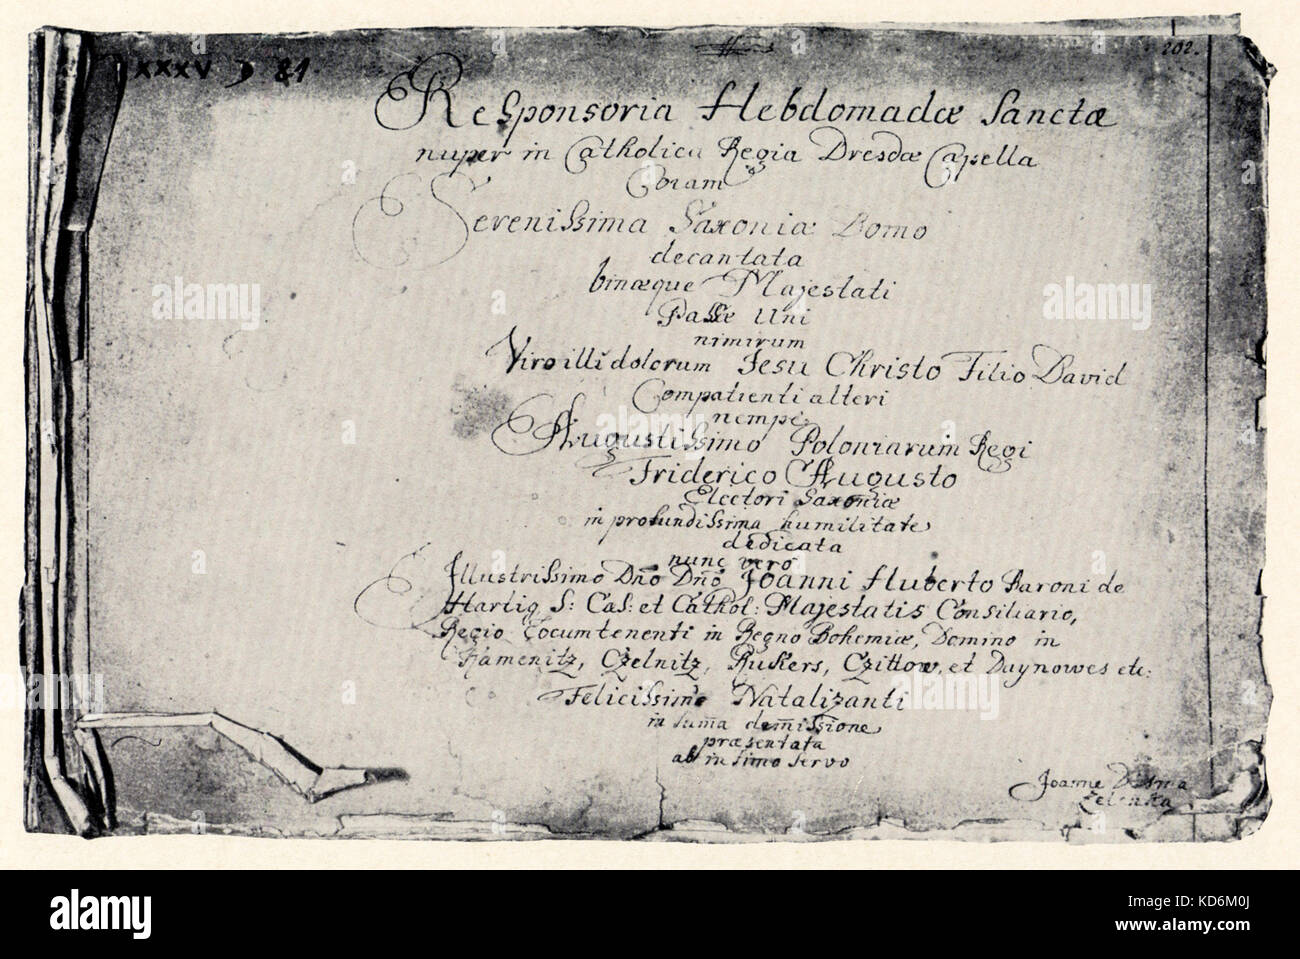 XXXV D 81.
202.
Responsoria Hebdomadæ Sanctæ
nuper in Catholica Regia Dresdæ Capella
Coram
Serenissima Saxoniæ Domo
decantata
binæque Majestati
Passæ Uni
nimirum
Viro illi dolorum Jesu Christo Filio David
Compatienti alteri
nempe
Augustissimo Poloniarum Regi
Friderico Augusto
Electori Saxoniæ
in profundissima humilitate
dedicata
nunc vero
Illustrissimo Dño Dño Joanni Huberto Baroni de
Hartig, S: Cæs: et Cathol: Majestatis Consiliario,
Regio Locumtenenti in Regno Bohemiæ, Domino in
Kamenitz, Czelnitz, Rukers, Czittow, et Duynowes etc:
Felicissime Natalizanti
in suma demissione
præsentata
ab insimo servo
Joanne Disma
Zelenka
alamy
alamy stock photo
KD6M0J
www.alamy.com